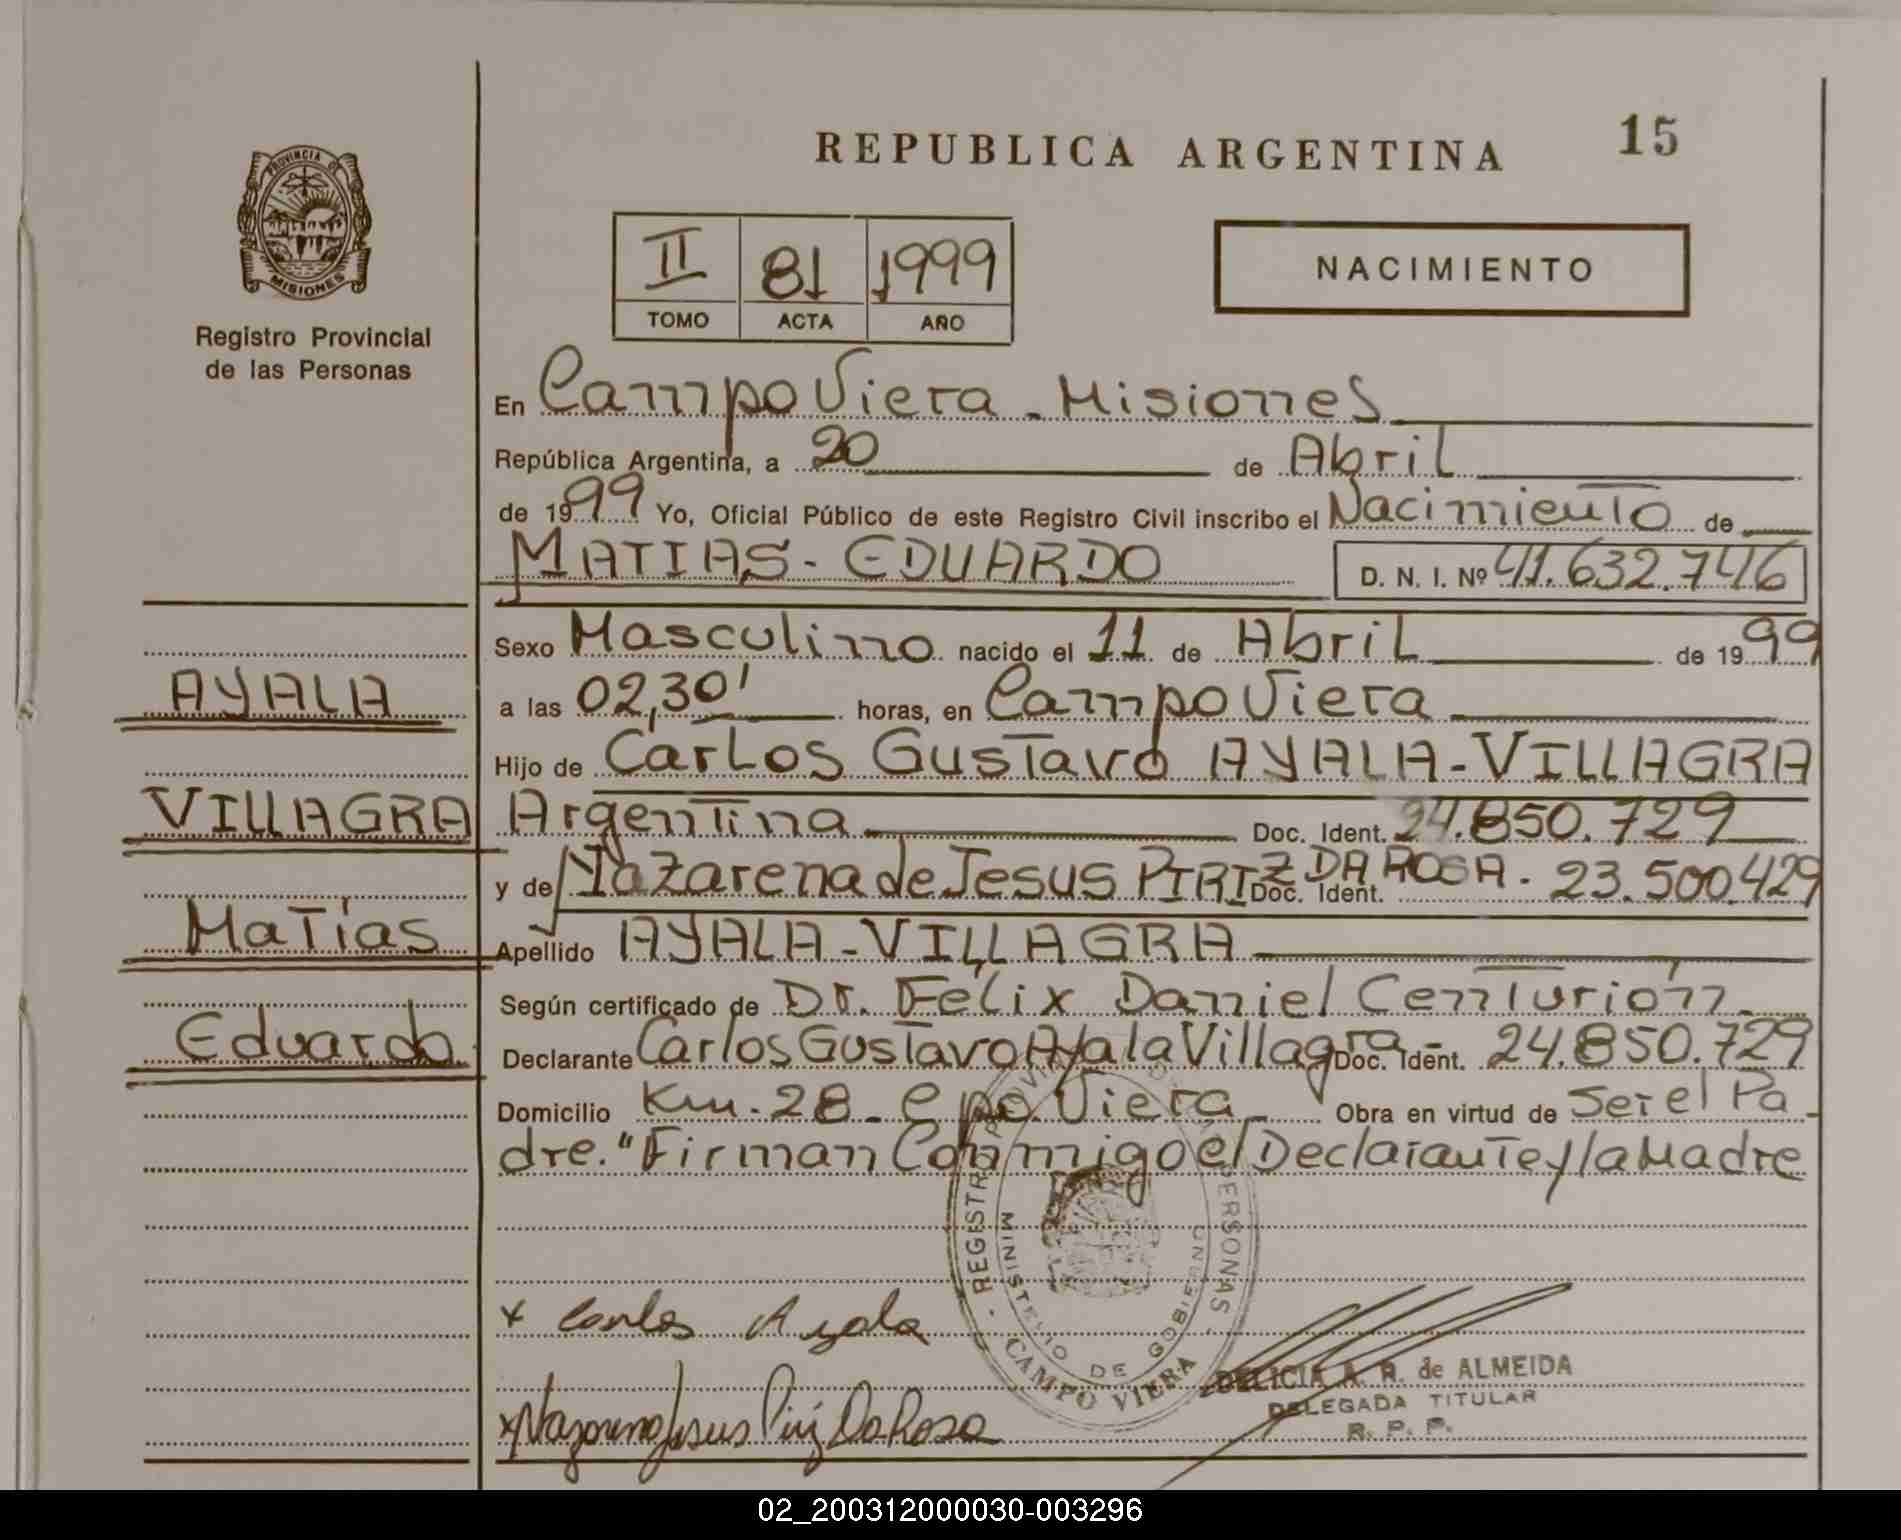 REPUBLICA ARGENTINA 15
PROVINCIA DE MISIONES
Registro Provincial
de las Personas
II 81 1999
TOMO ACTA AÑO
NACIMIENTO
En Campo Viera - Misiones
República Argentina, a 20 de Abril
de 1999 Yo, Oficial Público de este Registro Civil inscribo el Nacimiento de
MATIAS - EDUARDO D. N. I. Nº 41.632.746
Sexo Masculino nacido el 11 de Abril de 1999
AYALA
a las 02,30' horas, en Campo Viera
Hijo de Carlos Gustavo AYALA - VILLAGRA
VILLAGRA
Argentina Doc. Ident. 24.850.729
y de Nazarena de Jesus PIRIZ DA ROSA. Doc. Ident. 23.500.429
Matías
Apellido AYALA - VILLAGRA
Según certificado de Dr. Félix Daniel Centurión
Eduardo
Declarante Carlos Gustavo Ayala Villagra Doc. Ident. 24.850.729
Domicilio Km. 28 - Cpo. Viera Obra en virtud de Ser el Pa
dre. "Firman Conmigo el Declarante y la Madre
REGISTRO PROVINCIAL DE LAS PERSONAS - CAMPO VIERA
MINISTERIO DE GOBIERNO
x Carlos Ayala
DELICIA A. R. de ALMEIDA
DELEGADA TITULAR
R. P. P.
x Nazarena Jesus Piriz Da Rosa
02_200312000030-003296